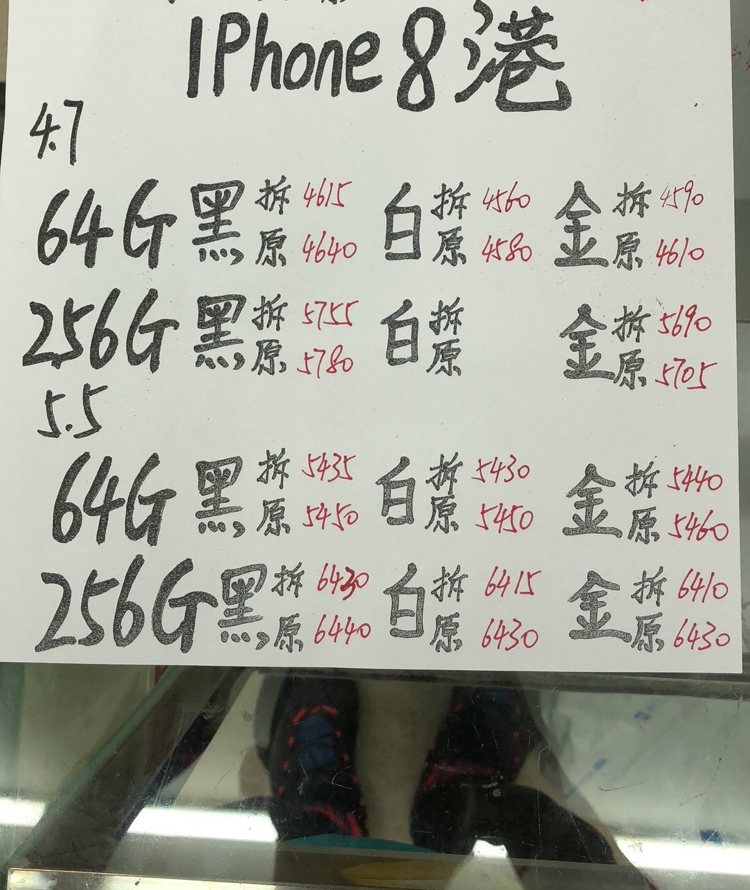 IPhone 8 港
4.7
64G 黑 拆 4615 白 拆 4560 金 拆 4590
原 4640 原 4580 原 4610
256G 黑 拆 5755 白 拆 金 拆 5690
原 5780 原 原 5705
5.5
64G 黑 拆 5435 白 拆 5430 金 拆 5440
原 5450 原 5450 原 5460
256G 黑 拆 6430 白 拆 6415 金 拆 6410
原 6440 原 6430 原 6430